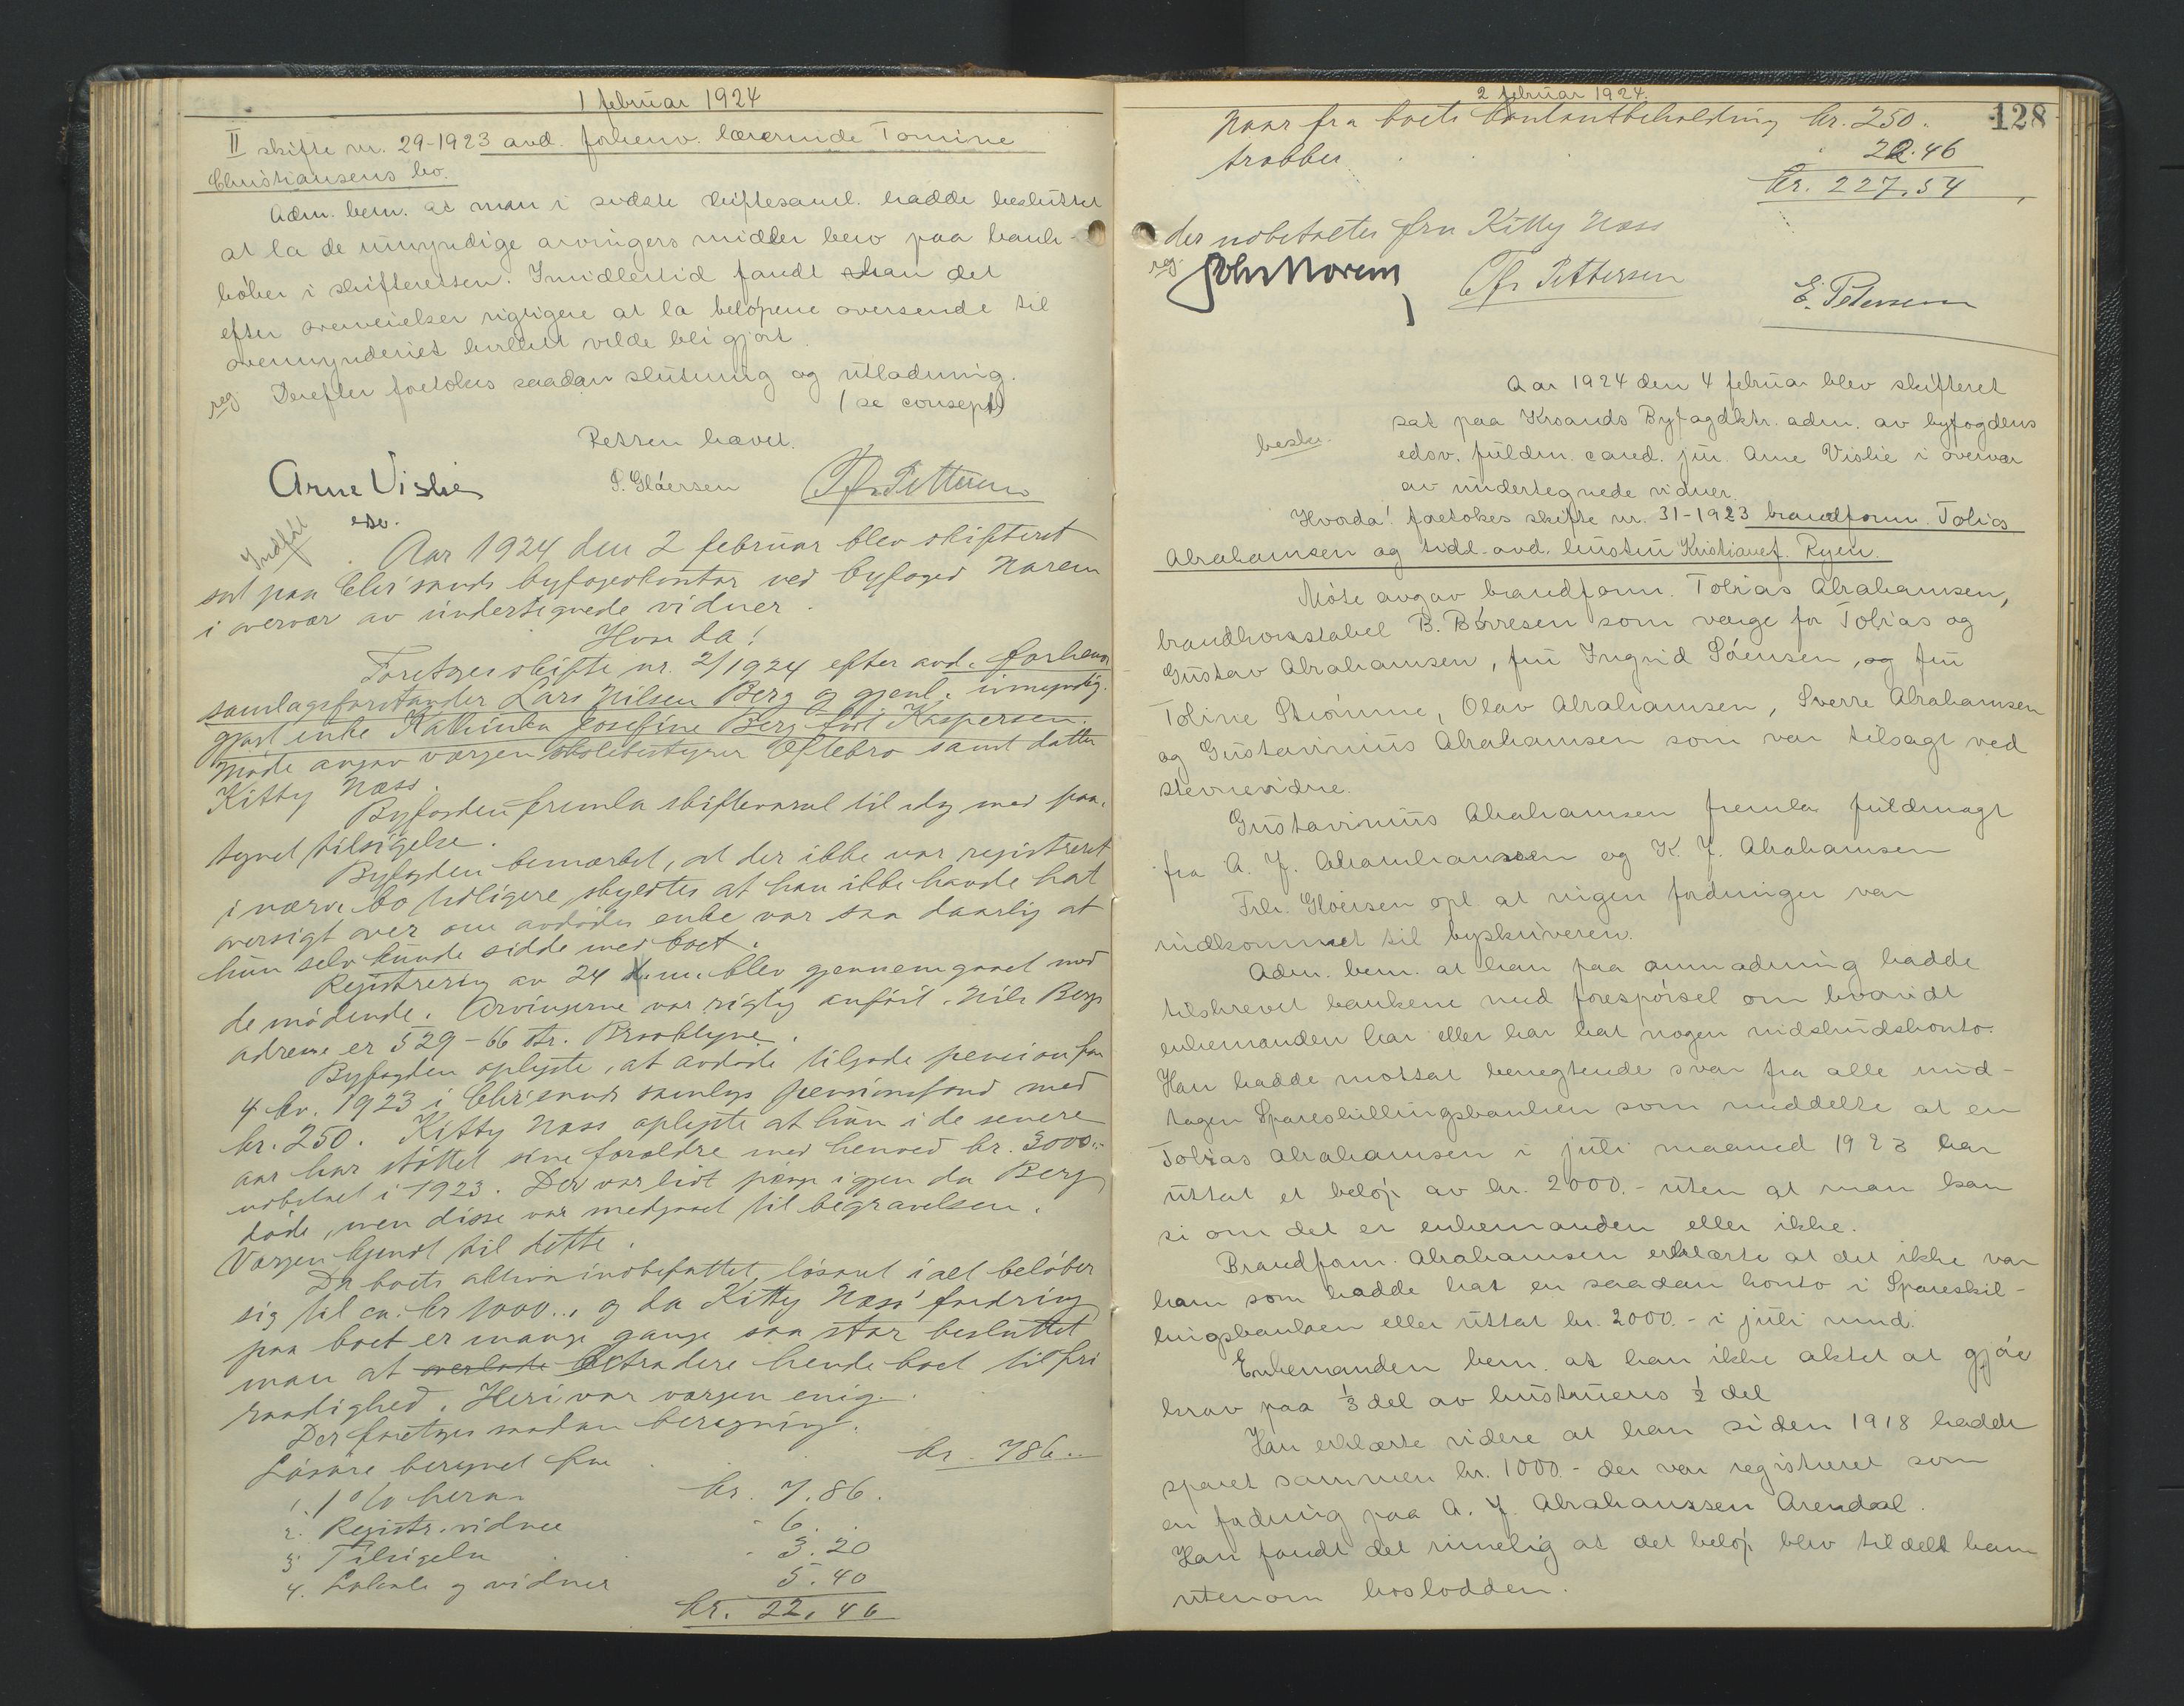 1 februar 1924
II skifte nr. 29-1923 avd. forhenv. lærerinde Tomine
Christiansens bo.
Adm. bem. at man i sidste skiftesaml. hadde besluttet
at la de umyndige arvingers midler bero paa bank-
bøker i skifteretten. Imidlertid fandt han det
efter overveielser rigtigere at la beløpene oversende til
overmynderiet hvilket vilde bli gjort.
reg Derefter foretokes saadan slutning og utlodning.
(se consept)
Retten hævet.
Arne Vislie S. Gloersen Chr. Pettersen
edsv.
Indført
Aar 1924 den 2 februar blev skifteret
sat paa Chr'sands byfogedkontor ved byfoged Norem
i overvær av undertegnede vidner.
Hvor da!
Foretoges skifte nr. 2/1924 efter avd. forhenv
samlagsforstander Lars Nilsen Berg og gjenl. umyndig-
gjort enke Kathinka Josefine Berg født Kaspersen.
Møde avgav værgen skolebestyrer Eftebro samt datter
Kitty Næss.
Byfogden fremla skiftevarsel til idag med paa-
tegnet tilsigelse.
Byfogden bemærket, at der ikke var registreret
i nærv. bo tidligere skyldtes at han ikke havde hat
oversigt over om avdødes enke var saa daarlig at
hun selv kunde sidde med boet.
Registrering av 24 f. m. blev gjennemgaaet med
de mødende. Arvingerne var rigtig anført. Nils Bergs
adresse er 529 - 66 Str. Brooklyn.
Byfogden oplyste, at avdøde tilgode pension for
4 kv. 1923 i Chr'sands samlags pensionsfond med
kr. 250. Kitty Næss oplyste at hun i de senere
aar har støttet sine forældre med henved kr. 3000.-
utbetalt i 1923. Der var lidt penge igjen da Berg
døde, men disse var medgaaet til begravelsen.
Værgen kjendt til dette.
Da boets aktiva indbefattet løsøret i alt beløber
sig til ca. kr 1000.., og da Kitty Næss' fordring
paa boet er mange gange saa stor besluttet
man at overlate Extradere hende boet til fri
raadighed. Heri var værgen enig.
Der foretoges saadan beregning.
Løsøre beregnet for kr. 786..
1. 1 % herav kr. 7.86.
2. Registr. vidner - 6.
3. Tilsigelse - 3.20
4. Lokale og vidner 5.40
kr. 22.46
2 februar 1924.
128
Naar fra boets kontantbeholdning kr. 250.
trækkes 22.46
kr. 227.54
der utbetales fru Kitty Næss
reg.
John Norem Chr. Pettersen E. Petersen
Aar 1924 den 4 februar blev skifteret
sat paa Krsands Byfogdktr. adm. av byfogdens
beskr. edsv. fuldm. cand. jur. Arne Vislie i overvær
av undertegnede vidner.
Hvorda! foretokes skifte nr. 31-1923 brandform. Tobias
Abrahamsen og tidl. avd. hustru Kristiane f. Ryen.
Møte avgav brandform. Tobias Abrahamsen,
brandkonstabel B. Børresen som værge for Tobias og
Gustav Abrahamsen, fru Ingrid Sørensen, og fru
Toline Strømme, Olav Abrahamsen, Sverre Abrahamsen
og Gustavinius Abrahamsen som var tilsagt ved
stevnevidne.
Gustavinius Abrahamsen fremla fuldmagt
fra A. J. Abrahamsen og K. J. Abrahamsen
Frk. Gloersen opl. at ingen fordringer var
indkommet til byskriveren.
Adm. bem. at han paa anmodning hadde
tilskrevet bankene med forespørsel om hvorvidt
enkemanden har eller har hat nogen indskudskonto.
Han hadde mottat benegtende svar fra alle und-
tagen Spareskillingsbanken som meddelte at en
Tobias Abrahamsen i juli maaned 1923 har
uttat et beløp av kr. 2000.- uten at man kan
si om det er enkemanden eller ikke.
Brandform. Abrahamsen erklærte at det ikke var
ham som hadde hat en saadan konto i Spareskil-
lingsbanken eller uttat kr. 2000.- i juli mnd.
Enkemanden bem. at han ikke aktet at gjøre
krav paa 1/3 del av hustruens 1/2 del
Han erklærte videre at han siden 1918 hadde
sparet sammen kr. 1000.- der var registreret som
en fordring paa A. J. Abrahamssen Arendal.
Han fandt det rimelig at det beløp blev tildelt ham
utenom boslodden.